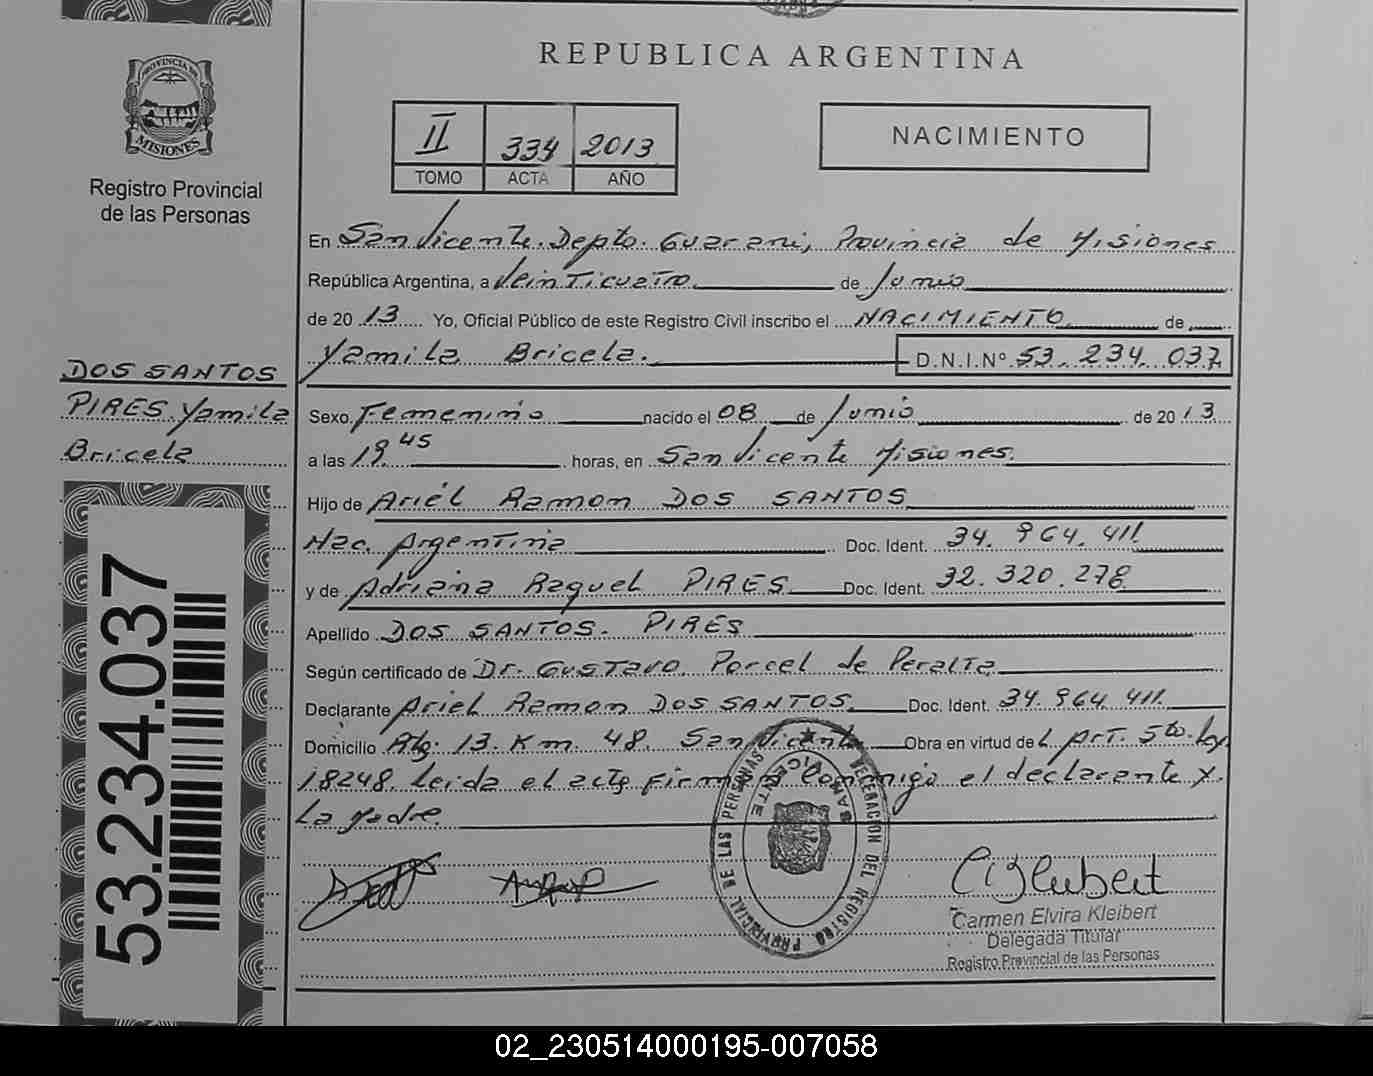 REPUBLICA ARGENTINA
PROVINCIA DE
MISIONES
Registro Provincial
de las Personas
II 334 2013
TOMO ACTA AÑO
NACIMIENTO
En San Vicente. Depto. Guarani, Provincia de Misiones
República Argentina, a Veinticuatro de Junio
de 20 13 Yo, Oficial Público de este Registro Civil inscribo el NACIMIENTO de
Yamila Bricela. D.N.I.Nº 53. 234. 037
DOS SANTOS
PIRES Yamila
Bricela
Sexo Femenino nacido el 08 de Junio de 20 13
a las 19 45 horas, en San Vicente Misiones.
Hijo de Ariel Ramon DOS SANTOS
Nac. Argentina Doc. Ident. 34. 964. 411
y de Adriana Raquel PIRES Doc. Ident. 32. 320. 278
Apellido DOS SANTOS. PIRES
Según certificado de Dr. Gustavo Porcel de Peralta
Declarante Ariel Ramon DOS SANTOS. Doc. Ident. 34. 964 411.
Domicilio 13. Km. 48. San Vicente Obra en virtud del Art. 5to. Ley
18248. Leida el acta firman conmigo el declarante y
La Madre.
53.234.037
DELEGACION DEL REGISTRO PROVINCIAL DE LAS PERSONAS
SAN VICENTE
Carmen Elvira Kleibert
Delegada Titular
Registro Provincial de las Personas
02_230514000195-007058